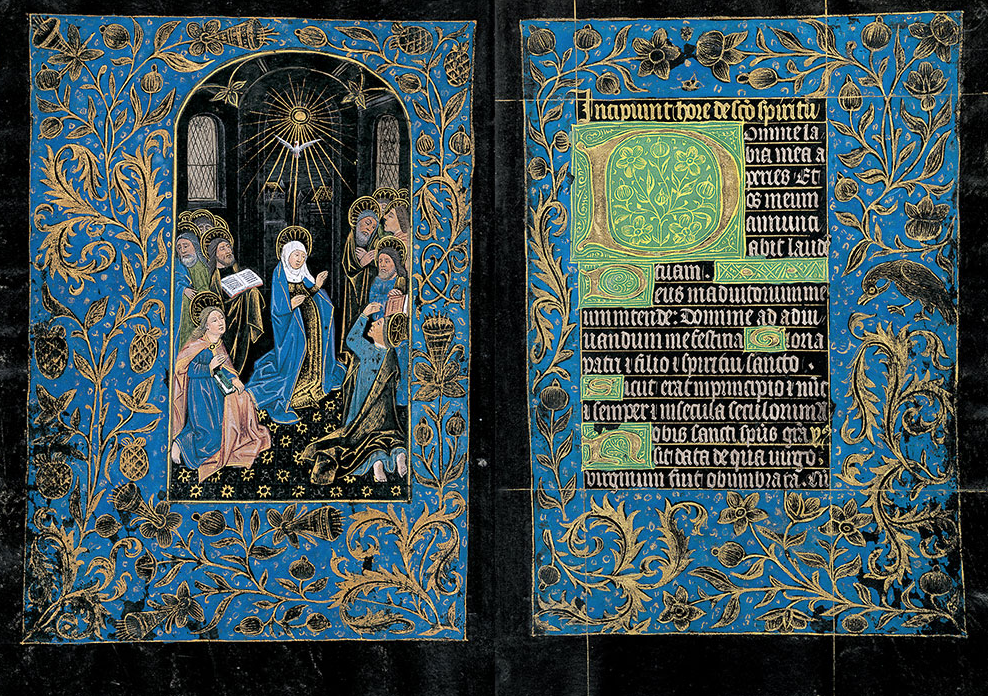 Incipiunt hore de sco spiritu
Domine la
bia mea a
peries · Et
os meum
annunti
abit laude
tuam.
Deus in adiutorium me
um intende : Domine ad adiu
uandum me festina Gloria
patri ⁊ filio ⁊ spiritui sancto ·
Sicut erat in principio ⁊ nūc
⁊ semper ⁊ in secula seculorum a
Nobis sancti spūs gr̄a
sit data de qua virgo
virginum fuit obumbrata . Cū